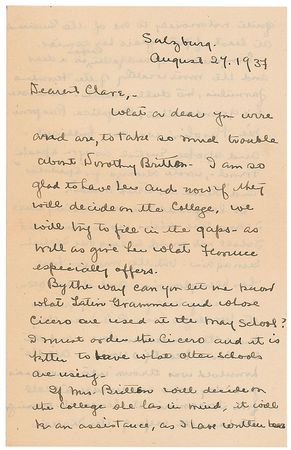 Salzburg.
August 27. 1937
Dearest Clare,-
What a dear you were
and are, to take so much trouble
about Dorothy Britton - I am so
glad to have her and now if they
will decide on the College, we
will try to fill in the gaps - as
well as give her what Florence
especially offers.
By the way can you let me know
what Latin Grammar and whose
Cicero are used at the May School?
I must order the Cicero and it is
better to have what other schools
are using.
If Mrs. Britton will decide on
the college she has in mind, it will
be an assistance, as I have written